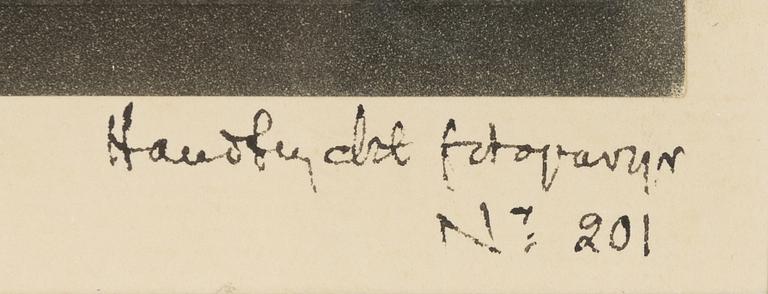 Handtryckt fotogravyr
Nr: 201